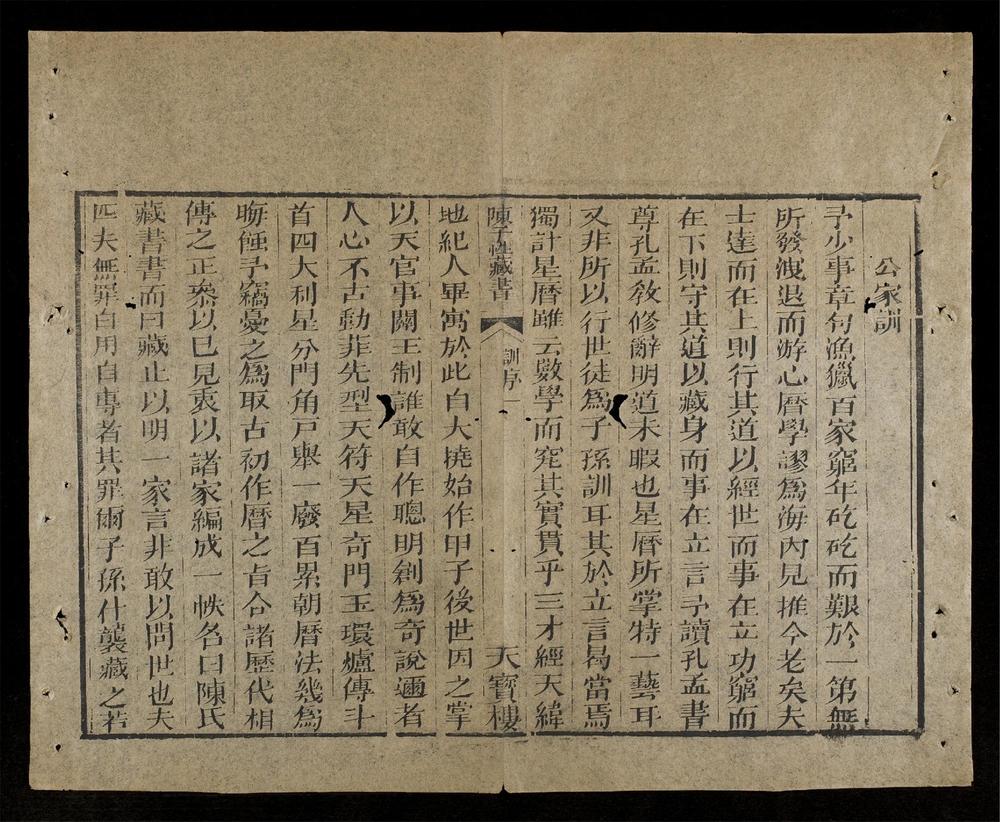 公家訓
予少事章句漁獵百家窮年矻矻而艱於一第無
所發洩退而游心曆學謬為海內見推今老矣夫
士達而在上則行其道以經世而事在立功窮而
在下則守其道以藏身而事在立言予讀孔孟書
尊孔孟教修辭明道未暇也星曆所掌特一藝耳
又非所以行世徒爲子孫訓耳其於立言曷當焉
獨計星曆雖云數學而究其實貫乎三才經天緯
陳子性藏書 訓序 一 天寶樓
地紀人畢寓於此自大撓始作甲子後世因之掌
以天官事關王制誰敢自作聰明創爲奇說邇者
人心不古動非先型天符天星奇門玉環爐傳斗
首四大利星分門角戸舉一廢百累朝曆法幾爲
晦蝕予竊憂之爲取古初作曆之旨合諸歷代相
傳之正叅以已見衷以諸家編成一帙名曰陳氏
藏書書而曰藏止以明一家言非敢以問世也夫
匹夫無罪自用自專者其罪爾子孫什襲藏之若